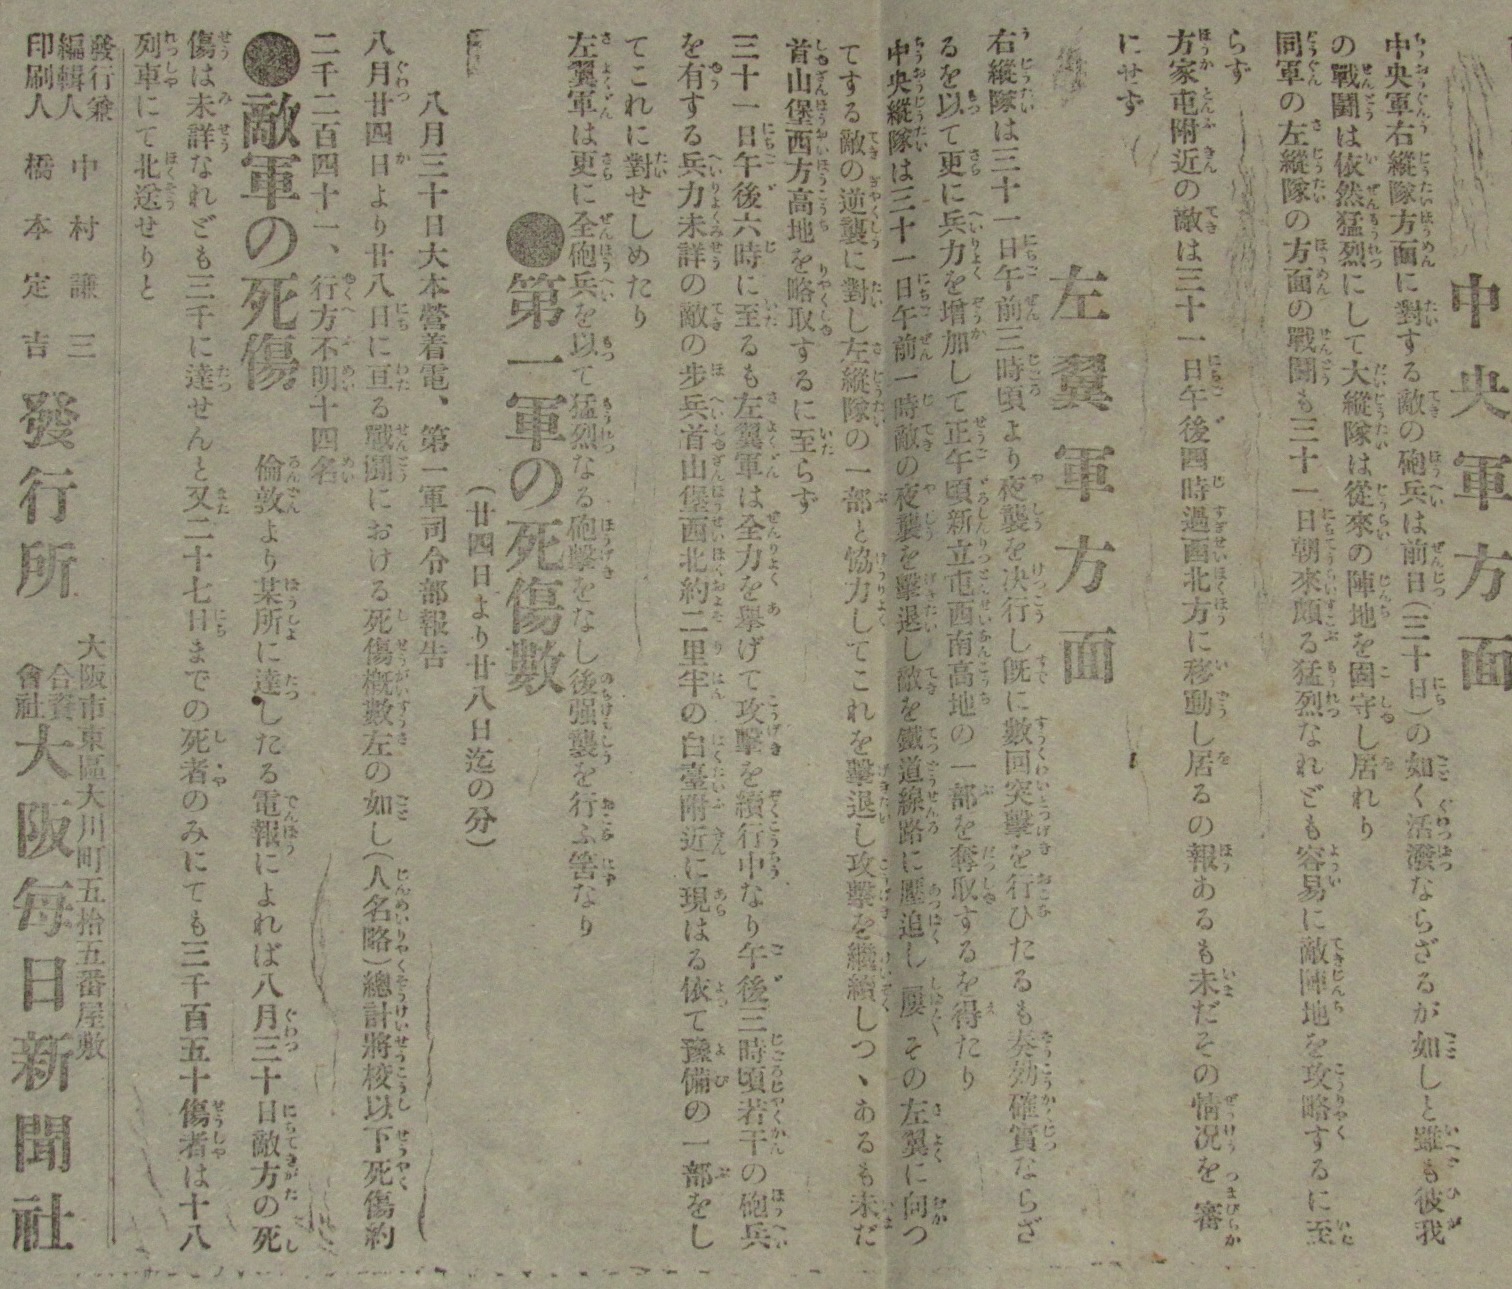 中央軍方面
中央軍右縱隊方面に對する敵の砲兵は前日(三十日)の如く活潑ならざるが如しと雖も彼我
の戰鬪は依然猛烈にして大縱隊は從來の陣地を固守し居れり
同軍の左縱隊の方面の戰鬪も三十一日朝來頗る猛烈なれども容易に敵陣地を攻略するに至
らず
方家屯附近の敵は三十一日午後四時過西北方に移動し居るの報あるも未だその情况を審
にせず
左翼軍方面
右縱隊は三十一日午前三時頃より夜襲を決行し既に數回突擊を行ひたるも奏効確實ならざ
るを以て更に兵力を增加して正午頃新立屯西南高地の一部を奪取するを得たり
中央縱隊は三十一日午前一時敵の夜襲を擊退し敵を鐵道線路に壓迫し屢その左翼に向つ
てする敵の逆襲に對し左縱隊の一部と協力してこれを擊退し攻擊を繼續しつゝあるも未だ
首山堡西方高地を略取するに至らず
三十一日午後六時に至るも左翼軍は全力を擧げて攻擊を續行中なり午後三時頃若干の砲兵
を有する兵力未詳の敵の步兵首山堡西北約二里半の白臺附近に現はる依て豫備の一部をし
てこれに對せしめたり
左翼軍は更に全砲兵を以て猛烈なる砲擊をなし後强襲を行ふ筈なり
●第一軍の死傷數
(廿四日より廿八日迄の分)
八月三十日大本營着電、第一軍司令部報告
八月廿四日より廿八日に亘る戰鬪における死傷槪數左の如し(人名略)總計將校以下死傷約
二千二百四十一、行方不明十四名
●敵軍の死傷
倫敦より某所に達したる電報によれば八月三十日敵方の死
傷は未詳なれども三千に達せんと又二十七日までの死者のみにても三千百五十傷者は十八
列車にて北送せりと
發行兼編輯人 中村謙三
印刷人 橋本定吉
發行所
大阪市東區大川町五拾五番屋敷
合資會社 大阪每日新聞社